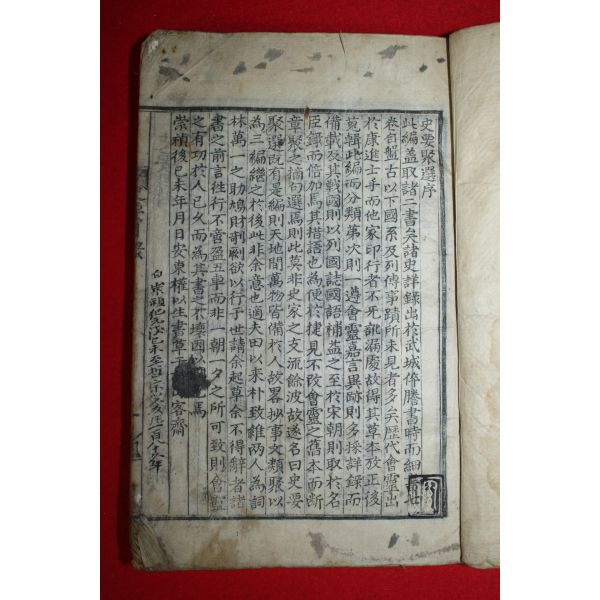 史要聚選序
此編盖取諸二書矣諸史詳錄出於武城倅謄書時而細
卷自盤古以下國系及列傳事蹟所未見者多矣歷代會靈出
於康進士手而他家印行者不死訛漏慶故得其草本攷正後
蒐輯此編而分類第次則一遵會靈嘉言異跡則多採詳錄而
備載及其戰國則以列國誌國語補益之至於宋朝則取於名
臣錄而倍加焉其措語也為便於捷見不改會靈之舊本而斷
章聚之摘句選焉則此莫非史家之支流餘波故遂名曰史要
聚選旣有是編則天地間萬物皆備於人故畧抄事文類聚以
為三編繼之於後此非余意也適夫田以來朴致維兩人為詞
林萬一之助鳩財剞劂欲以行于世請余起草余不得辭者諸
書之前言徃行不啻盈五車而非一朝一夕之所可致則會靈
之有功於人已久而為其書之不壞因以
焉
崇禎後己未年月日安東權以生書草
客齋
自崇禎紀元後己未至
百八十
年